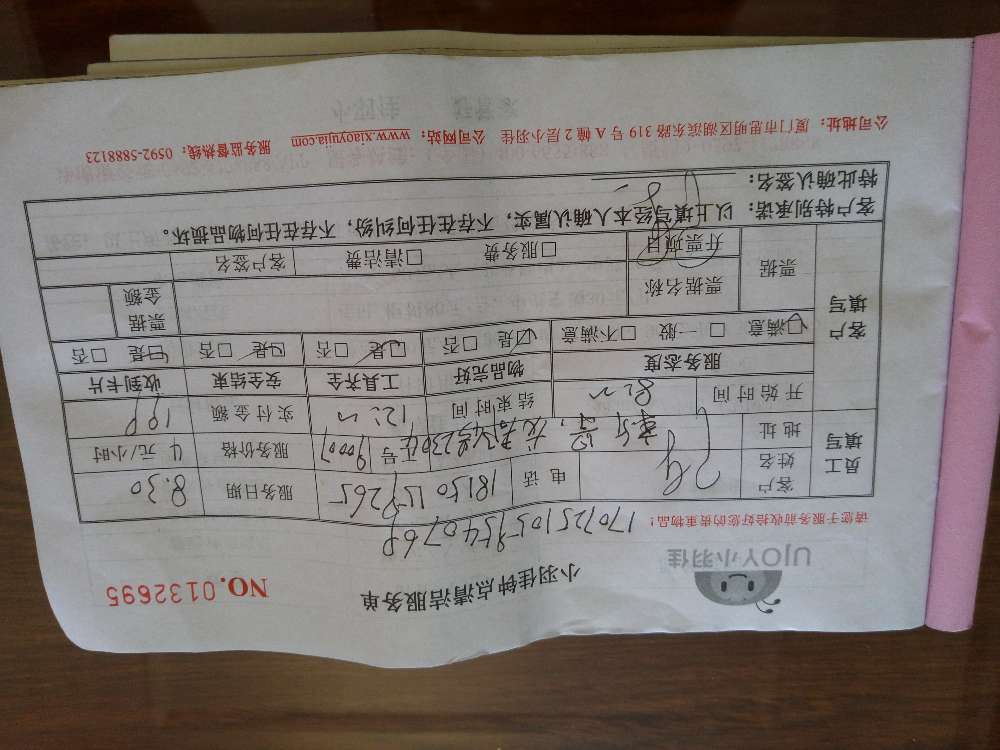 UJOY小羽佳
小羽佳钟点清洁服务单
NO.0132695
请您于服务前收拾好您的贵重物品!
员工填写
客户姓名
电话
18150
服务日期
8.30
地址
号
服务价格
4 元/小时
开始时间
结束时间
实付金额
客户填写
服务态度
物品完好
工具齐全
安全结束
收到卡片
☑满意 □一般 □不满意
☑是 □否
☑是 □否
☑是 □否
☑是 □否
票据
票据名称
票据金额
开票项目
□服务费 □清洁费
客户签名
客户特别承诺:以上填写经本人确认属实,不存在任何纠纷,不存在任何物品损坏。
特此确认签名:
公司地址:厦门市思明区湖滨东路319号A幢2层小羽佳 公司网站:www.xiaoyujia.com 服务监督热线:0592-5888123